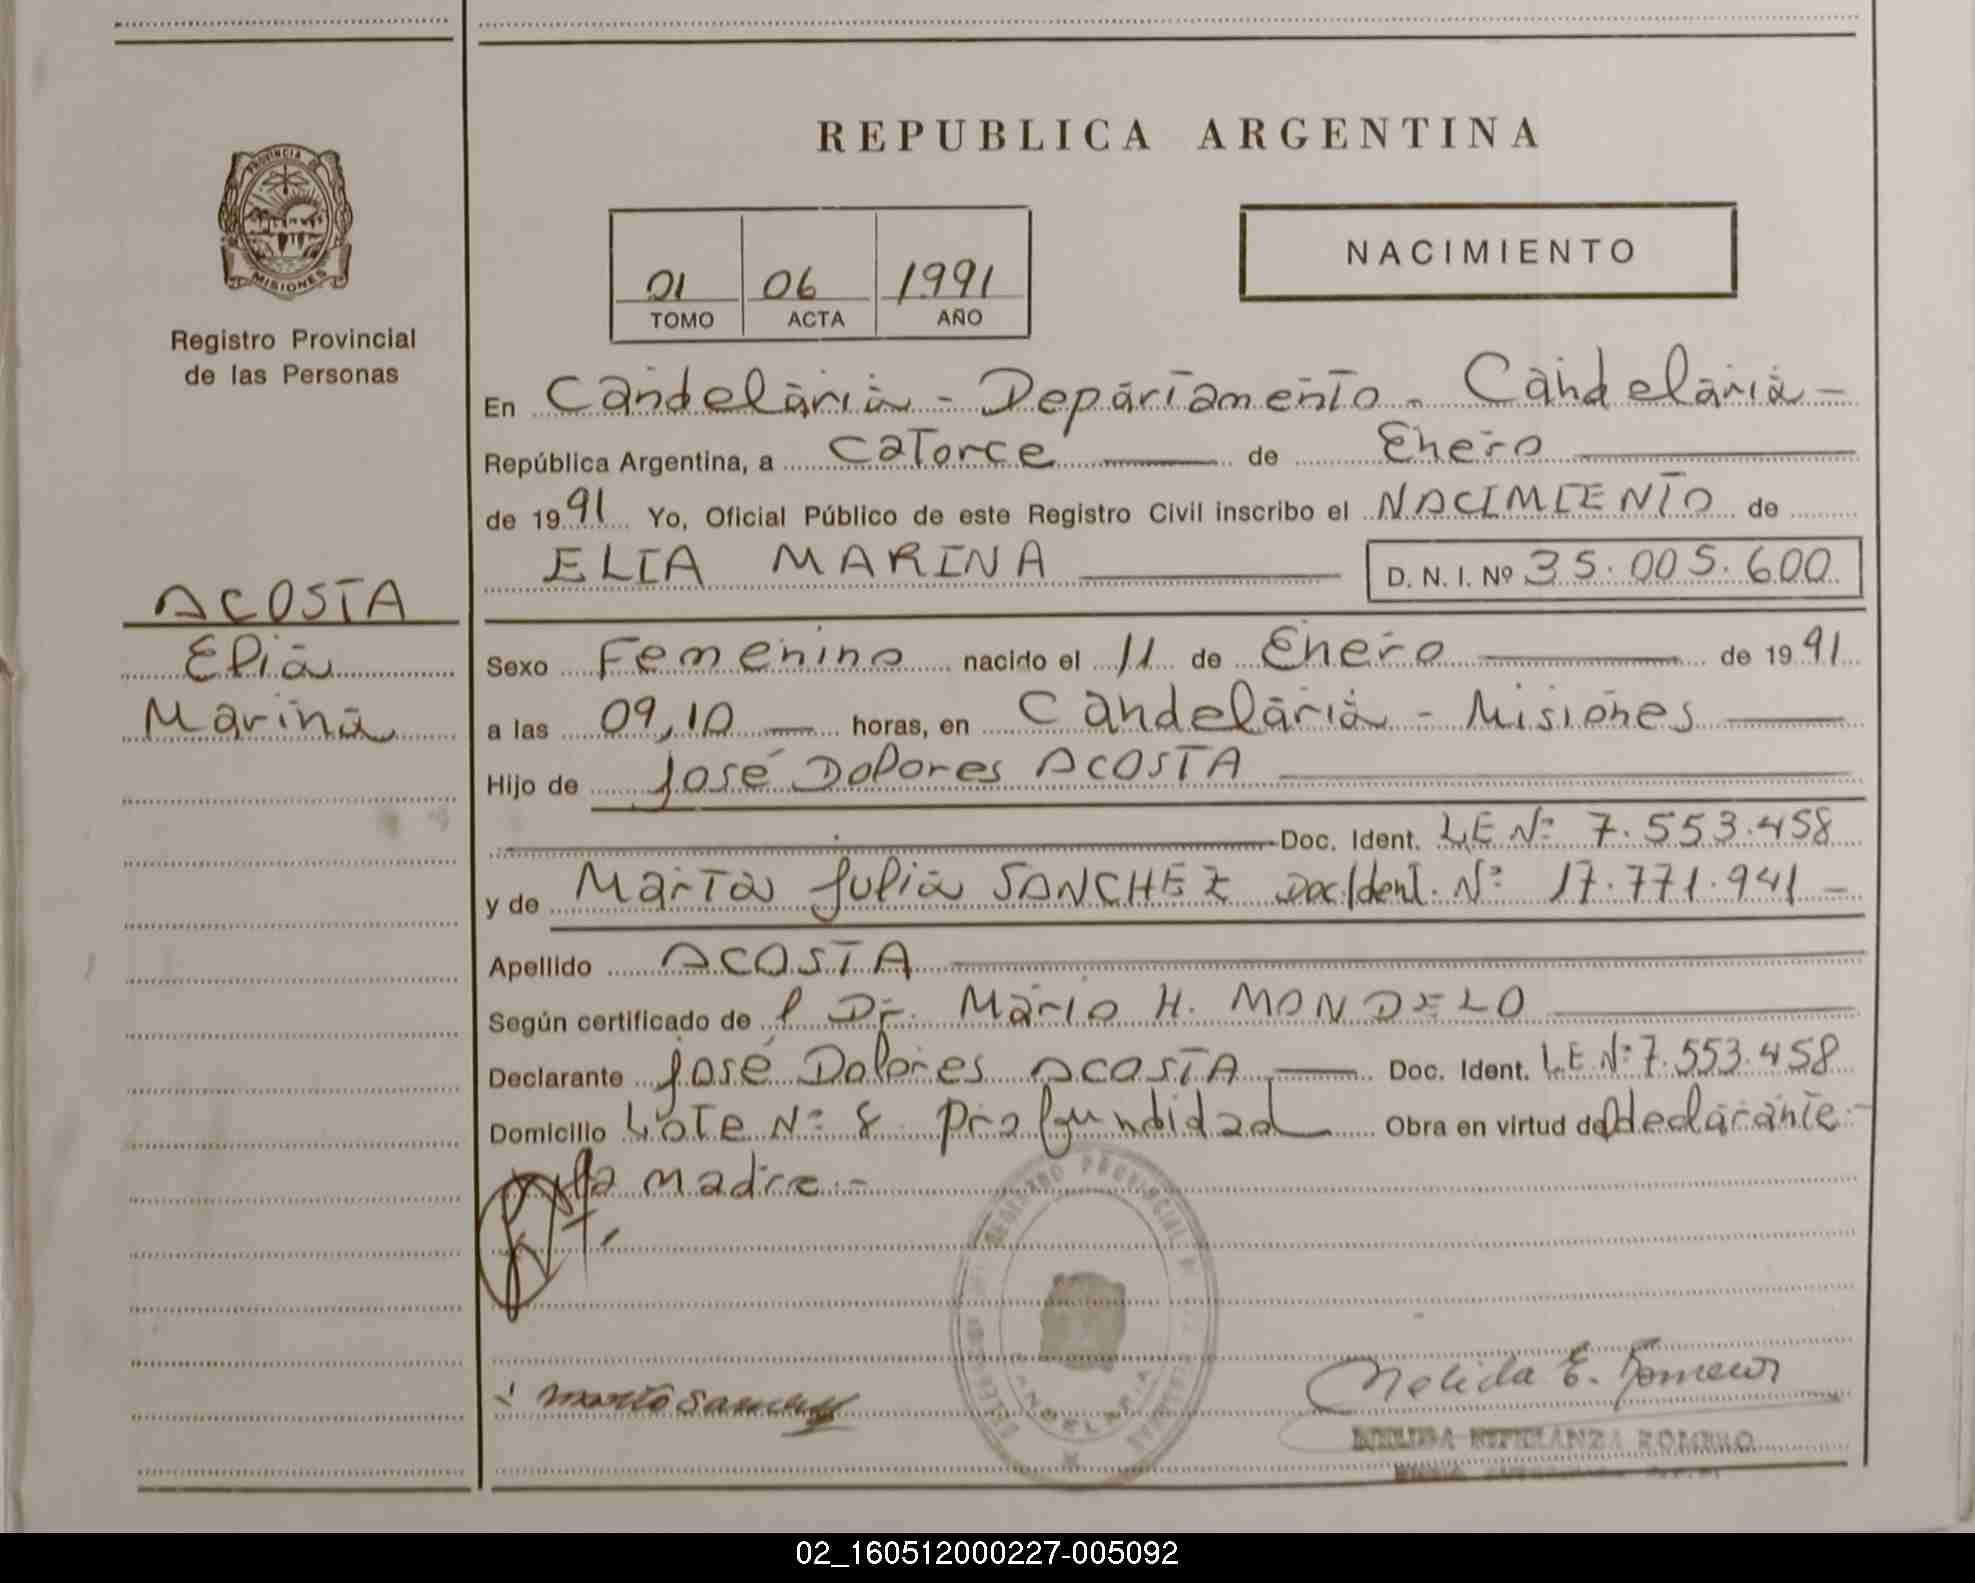 REPUBLICA ARGENTINA
PROVINCIA DE
MISIONES
Registro Provincial
de las Personas
NACIMIENTO
01 06 1991
TOMO ACTA AÑO
En Candelaria - Departamento - Candelaria -
República Argentina, a Catorce de Enero
de 1991 Yo, Oficial Público de este Registro Civil inscribo el NACIMIENTO de
ELIA MARINA D. N. I. Nº 35.005.600
ACOSTA
Elia
Marina
Sexo Femenino nacido el 11 de Enero de 1991
a las 09,10 horas, en Candelaria - Misiones
Hijo de José Dolores ACOSTA
Doc. Ident. LE Nº 7.553.458
y de Marta Julia SANCHEZ Doc Ident. Nº 17.771.941 -
Apellido ACOSTA
Según certificado de l Dr. Mario H. MONDELO
Declarante José Dolores ACOSTA Doc. Ident. LE Nº 7.553.458
Domicilio Lote Nº 8 Profundidad Obra en virtud de declarante -
y la madre -
REGISTRO PROVINCIAL DE LAS PERSONAS
CANDELARIA
Marta Sanchez
Nelida E. Romero
NELIDA ESPERANZA ROMERO
02_160512000227-005092